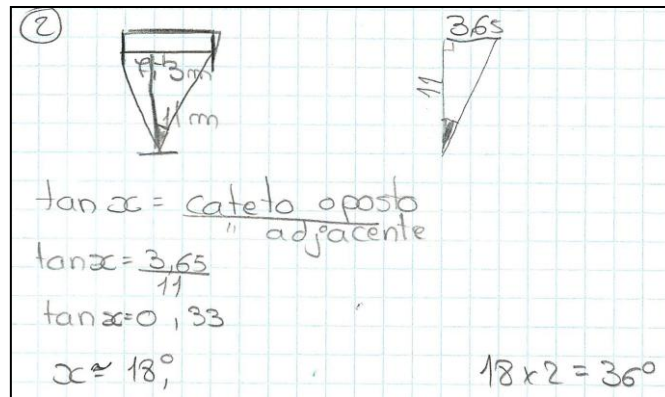 2
7,3 m
11 m
3,65
11
tan x = cateto oposto
" adjacente
tan x = 3,65
11
tan x = 0,33
x ≈ 18°,
18 x 2 = 36°